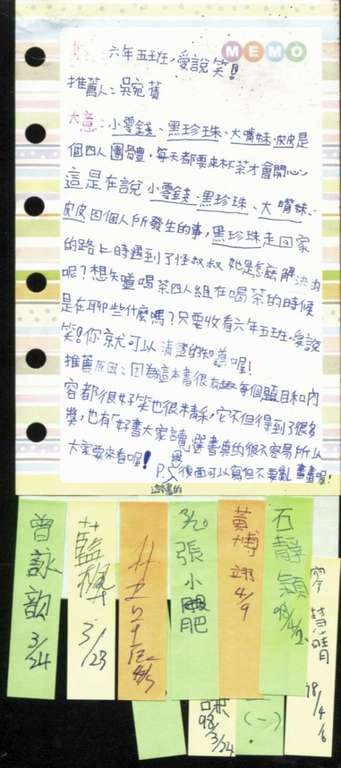 MEMO
六年五班,愛說笑!
推薦人:吳宛蒨
大意:小零錢、黑珍珠、大嘴妹、皮皮是
個四人團體,每天都要來杯茶才會開心。
這是在說小零錢、黑珍珠、大嘴妹、
皮皮四個人所發生的事,黑珍珠走回家
的路上時遇到了怪叔叔 她是怎麼解決的
呢?想知道喝茶四人組在喝茶的時候
是在聊些什麼嗎?只要收看六年五班,愛說
笑!你就可以清楚的知道喔!
推薦原因:因為這本書很有趣每個題目和內
容都很好笑也很精采,它不但得到了很多
獎,也有「好書大家讀」選書真的很不容易所以
大家要來看喔!P.S後面可以寫但不要亂畫喔!
曾詠歆 3/24
3/23
張小肥
黃博翊 4/9
石靜穎
98/4/6
98 3/24
(一)